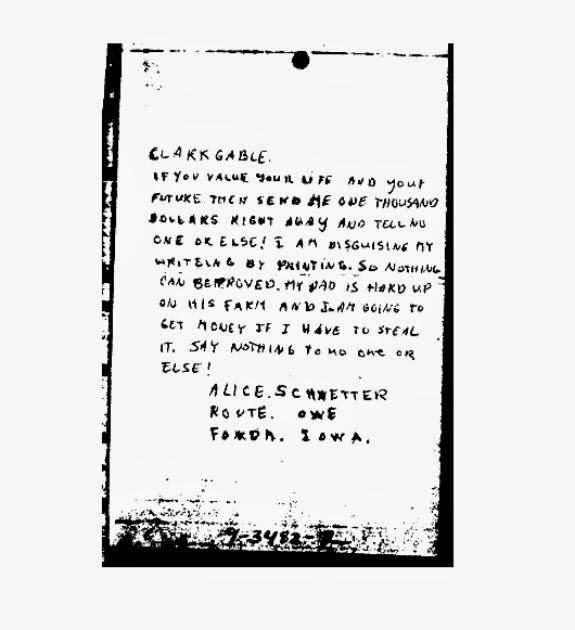 CLARK GABLE.
IF YOU VALUE YOUR LIFE AND your
FUTURE. THEN SEND ME ONE THOUSAND
DOLLARS RIGHT AWAY AND TELL NO
ONE OR ELSE! I AM DISGUISING MY
WRITEING BY PRINTING. SO NOTHING
CAN BE PROVED. MY DAD IS HARD UP
ON HIS FARM AND I AM GOING TO
GET MONEY IF I HAVE TO STEAL
IT. SAY NOTHING TO no one OR
ELSE!
ALICE. SCHWETTER
ROUTE. ONE
FONDA. IOWA.
9-3482-2